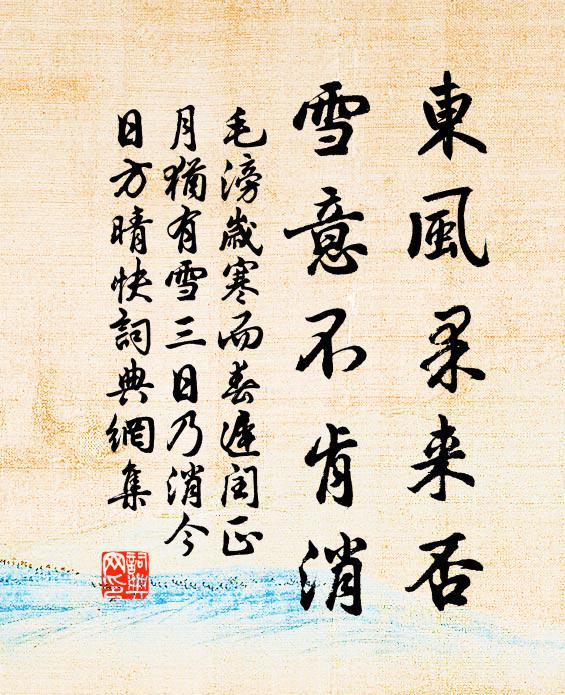 東風果来否
雪意不肯消
毛滂歲寒而春遅閏正
月猶有雪三日乃消今
日方晴快詞典網集